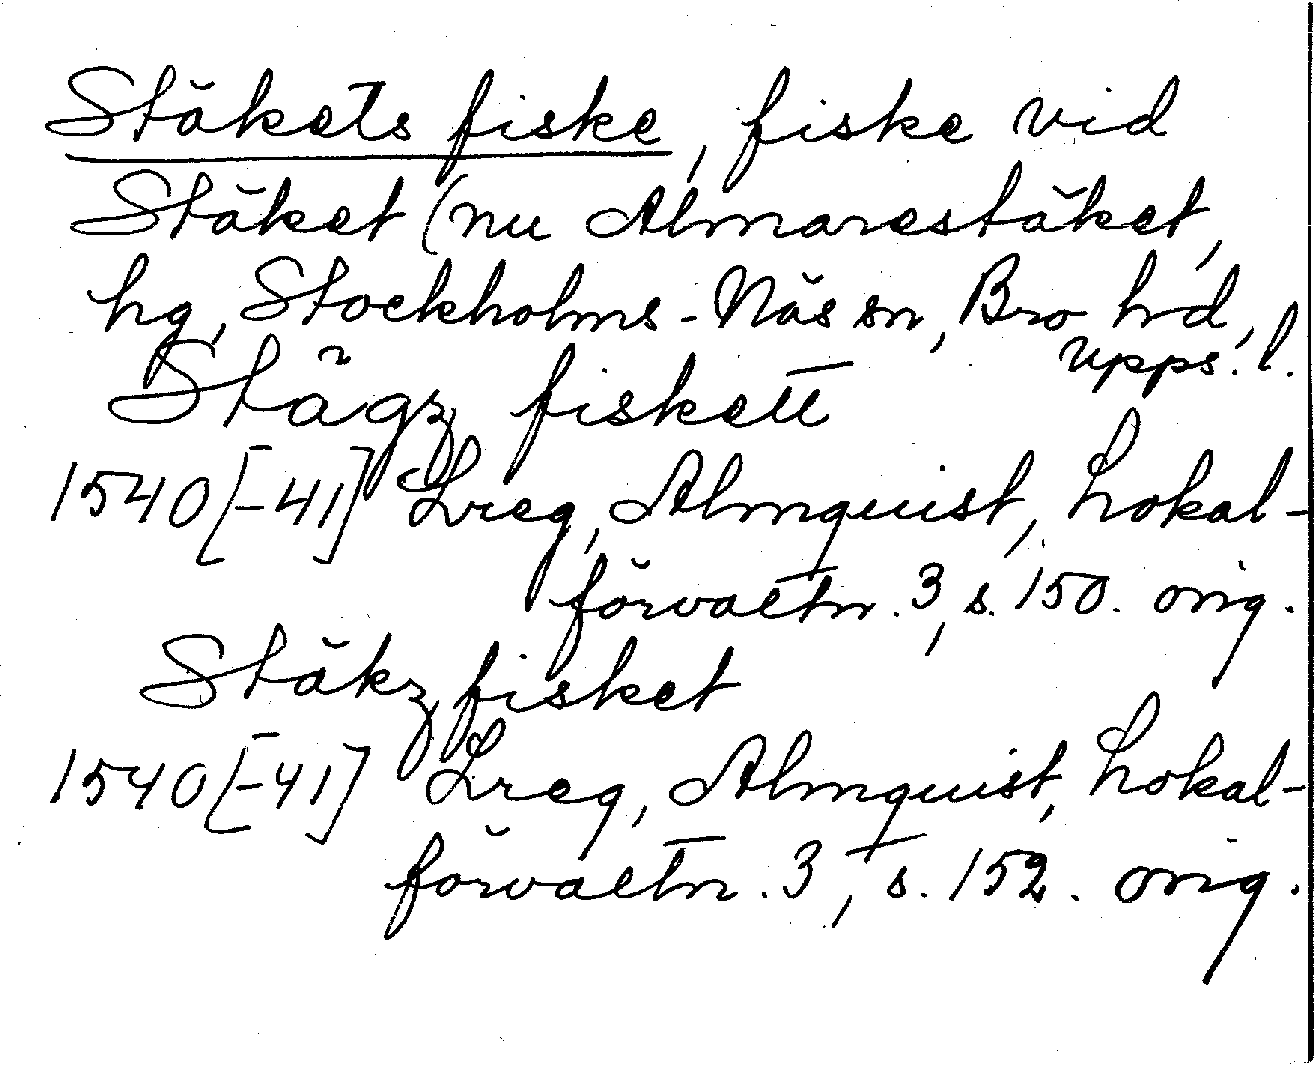 Stäkets fiske, fiske vid
Stäket (nu Almarestäket,
hg, Stockholms-Näs sn, Bro hd,
Upps. l.
Stägz fiskett
1540[-41] Lreg, Almquist, Lokal-
förvaltn. 3, s. 150. orig.
Stäkz fisket
1540[-41] Lreg, Almquist, Lokal-
förvaltn. 3, s. 152. orig.